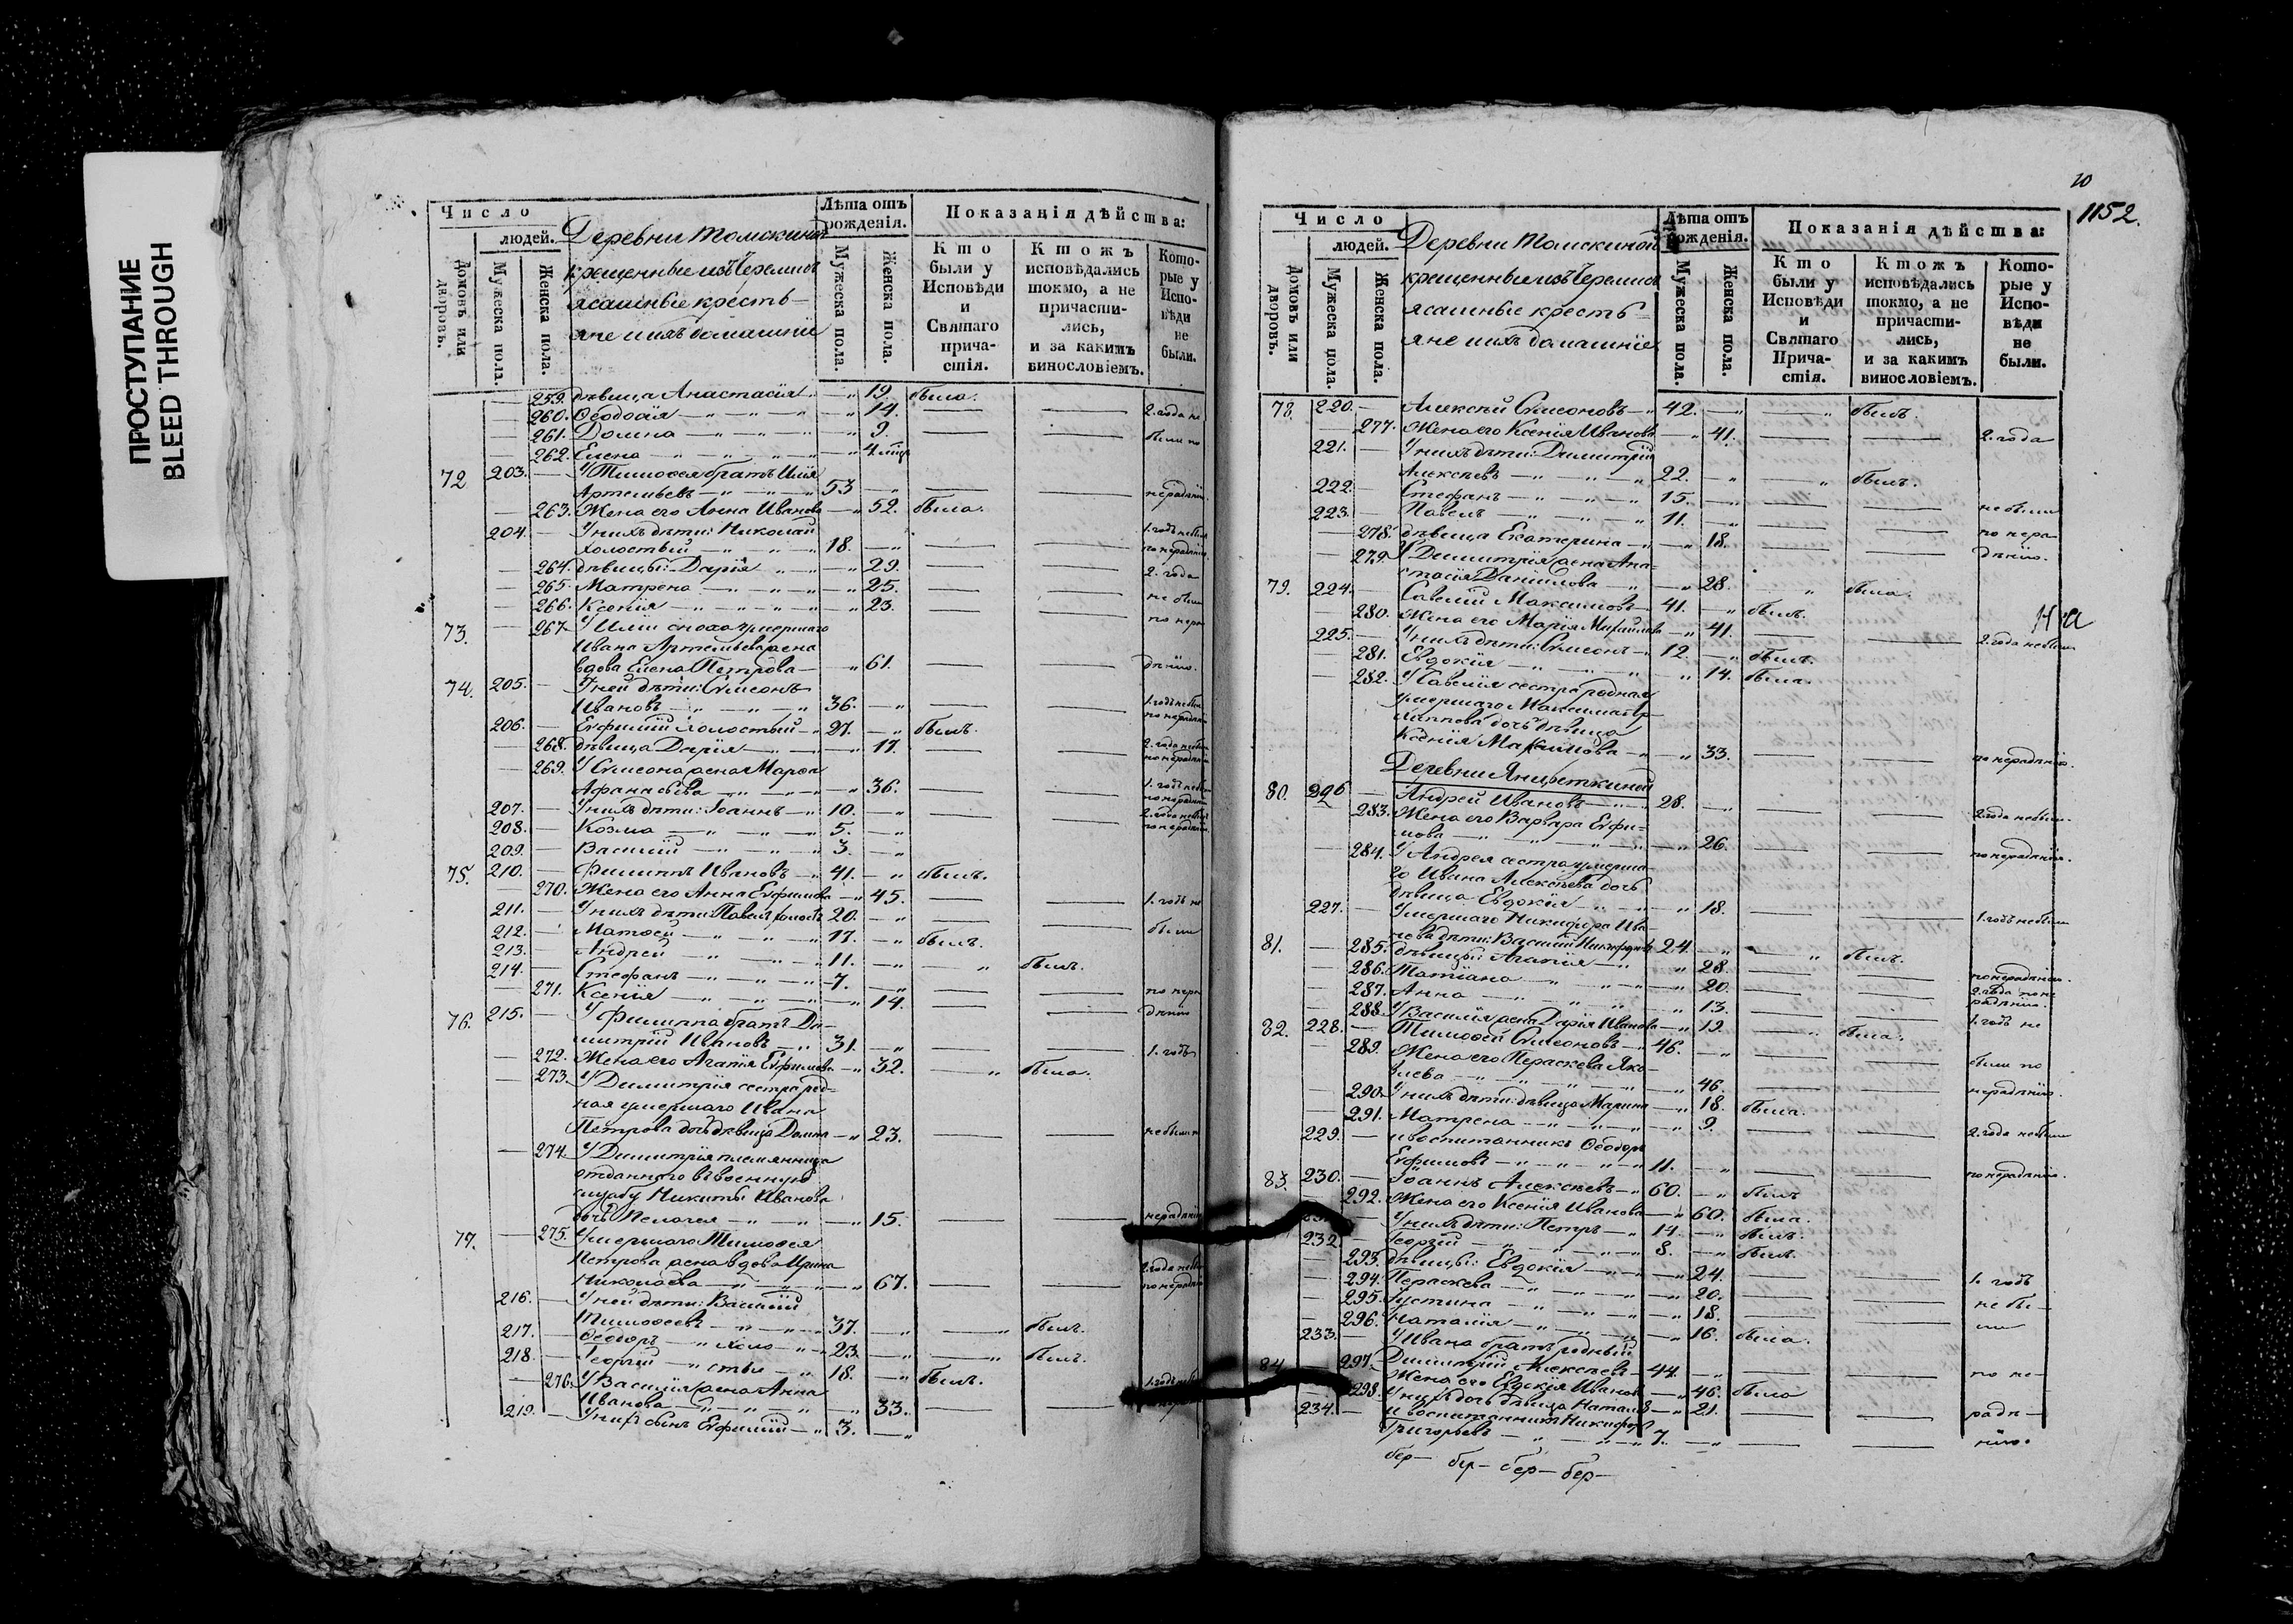 ПРОСТУПАНИЕ
BLEED THROUGH
Число
людей.
домовъ или дворовъ.
Мужеска пола.
Женска пола.
Деревни Томскиной
крещенные изъ Черемисъ
ясашные кресть-
яне и ихъ домашнiе
Лѣта отъ рожденiя.
Мужеска пола.
Женска пола.
Показанiя дѣйства:
Кто были у Исповѣди и Святаго причастiя.
Ктожъ исповѣдались токмо, а не причастились, и за какимъ винословiемъ.
Которые у Исповѣди не были.
— 259. дѣвица Анастасiя — 19. была.
— 260. Ѳеодосiя — 14. — — 2. года не
— 261. Домна — 9. — — были по
— 262. Елена — 4 мѣц
72 203. — У Тимоѳея братъ Илiя
Артемьевъ — 53 — — — нерадѣнiю.
— 263. Жена его Анна Иванова — 52. была.
204. — У нихъ дѣти: Николай 1. годъ не были
холостый — 18. — — — по нерадѣнiю
— 264. дѣвицы: Дарiя — 29. — — 2. года
— 265. Матрена — 25. — — не были
— 266. Ксенiя — 23. — — по нера
73. — 267. У Илiи сноха умершаго
Ивана Артемьева жена
вдова Елена Петрова — 61. — — дѣнiю.
74. 205. — У ней дѣти: Симеонъ
Ивановъ — 36. — — — 1. годъ не былъ
по нерадѣнiю
206. — Евфимiй холостый — 27. — былъ.
— 268. дѣвица Дарiя — 17. — — 2. года не были
по нерадѣнiю
— 269. У Симеона жена Марѳа
Афанасьева — 36. — — 1. годъ не была
по нерадѣнiю
207. — У нихъ дѣти: Iоаннъ — 10. — — — 2. года не былъ
208. — Козма — 5. — по нерадѣнiю
209. — Василiй — 3. —
75. 210. — Филиппъ Ивановъ — 41. — былъ.
— 270. Жена его Анна Евфимова — 45. — — 1. годъ не
211. — У нихъ дѣти: Павелъ холостъ 20. — — — были
212. — Матѳей — 17. — былъ.
213. — Андрей — 11. — „ былъ.
214. — Стефанъ — 7. — — — по нера
— 271. Ксенiя — 14. — — дѣнiю
76. 215. — У Филиппа братъ Ди-
митрiй Ивановъ — 31. — — — 1. годъ
— 272. Жена его Агапiя Евфимова — 32. — „ была.
— 273. У Димитрiя сестра род-
ная умершаго Ивана
Петрова дочь дѣвица Домна — 23. — — не были п
— 274. У Димитрiя племянница
отданнаго въ военную
службу Никиты Иванова
дочь Пелагея — 15. — — нерадѣнiю
77. — 275. Умершаго Тимоѳея
Петрова жена вдова Ирина 2. года не была
Николаева — 67. — — по нерадѣнiю
216. — У ней дѣти: Василiй
Тимоѳеевъ — 37. — „ былъ.
217. — Ѳеодоръ — холо — 23. — „ былъ.
218. — Георгiй — стые — 18. — „ былъ.
— 276. У Василiя жена Анна 1. годъ не б
Иванова — 33. — —
219. — У нихъ сынъ Евфимiй — 3. —
10
1152.
Число
людей.
домовъ или дворовъ.
Мужеска пола.
Женска пола.
Деревни Томскиной
крещенные изъ Черемисъ
ясашные кресть-
яне и ихъ домашнiе
Лѣта отъ рожденiя.
Мужеска пола.
Женска пола.
Показанiя дѣйства:
Кто были у Исповѣди и Святаго Причастiя.
Ктожъ исповѣдались токмо, а не причастились, и за какимъ винословiемъ.
Которые у Исповѣди не были.
78. 220. — Алексiй Симеоновъ — 42. — „ былъ.
— 277. Жена его Ксенiя Иванова — 41. — — 2. года
221. — У нихъ дѣти: Димитрiй
Алексѣевъ — 22. — „ былъ.
222. — Стефанъ — 15. — — — не были
223. — Павелъ — 11. — — — по нера-
— 278. дѣвица Екатерина — 18. — — дѣнiю.
— 279. У Димитрiя жена Ана-
стасiя Данiилова — 28. „ была.
79. 224. — Савелiй Максимовъ — 41. — былъ.
— 280. Жена его Марiя Михайлова — 41. — — 2. года не была
225. — У нихъ дѣти: Симеонъ — 12. — былъ.
— 281. Евдокiя — 14. была.
— 282. У Савелiя сестра родная
умершаго Максима Ар-
хиппова дочь дѣвица
Ксенiя Максимова — 33. — — по нерадѣнiю.
Деревни Янцеткиной
80. 226 — Андрей Ивановъ — 28. — — — 2. года не были
— 283. Жена его Варвара Евфи-
мова — 26. — — по нерадѣнiю.
— 284. У Андрея сестра умерша-
го Ивана Алексѣева дочь
дѣвица Евдокiя — 18. — — 1. годъ не была
227. — Умершаго Никифора Ива-
нова дѣти: Василiй Никифоровъ 24. „ „ былъ.
81. — 285. дѣвицы: Агапiя — 28. — — по нерадѣнiю.
— 286. Татiана — 20. — — 2. года по не
— 287. Анна — 13. — — радѣнiю.
— 288. У Василiя жена Дарiя Иванова — 19. „ была. 1. годъ не
82. 228. — Тимоѳей Симеоновъ — 46. — — — были по
— 289. Жена его Параскева Яко-
влева — 46. — — нерадѣнiю.
— 290. У нихъ дѣти: дѣвица Марина — 18. была.
— 291. Матрена — 9. — — 2. года не были
229. — и воспитанникъ Ѳеодоръ
Евфимовъ — 11. — — — по нерадѣнiю.
83. 230. — Iоаннъ Алексѣевъ — 60. — былъ
— 292. Жена его Ксенiя Иванова — 60. была.
У нихъ дѣти: Петръ — 14. — былъ.
232. Георгiй — 8. — былъ.
— 293. дѣвицы: Евдокiя — 24. — — 1. годъ
— 294. Параскева — 20. — — не бы-
— 295. Iустина — 18. — — ли
— 296. Наталiя — 16. была.
233. — У Ивана братъ родный
84. Димитрiй Алексѣевъ — 44. — — — по не-
297. Жена его Евдокiя Иванов — 46. была
298. У нихъ дочь дѣвица Натал — 21. — — радѣ-
234. — и воспитанникъ Никифоръ
Григорьевъ — 7. — — — нiю.